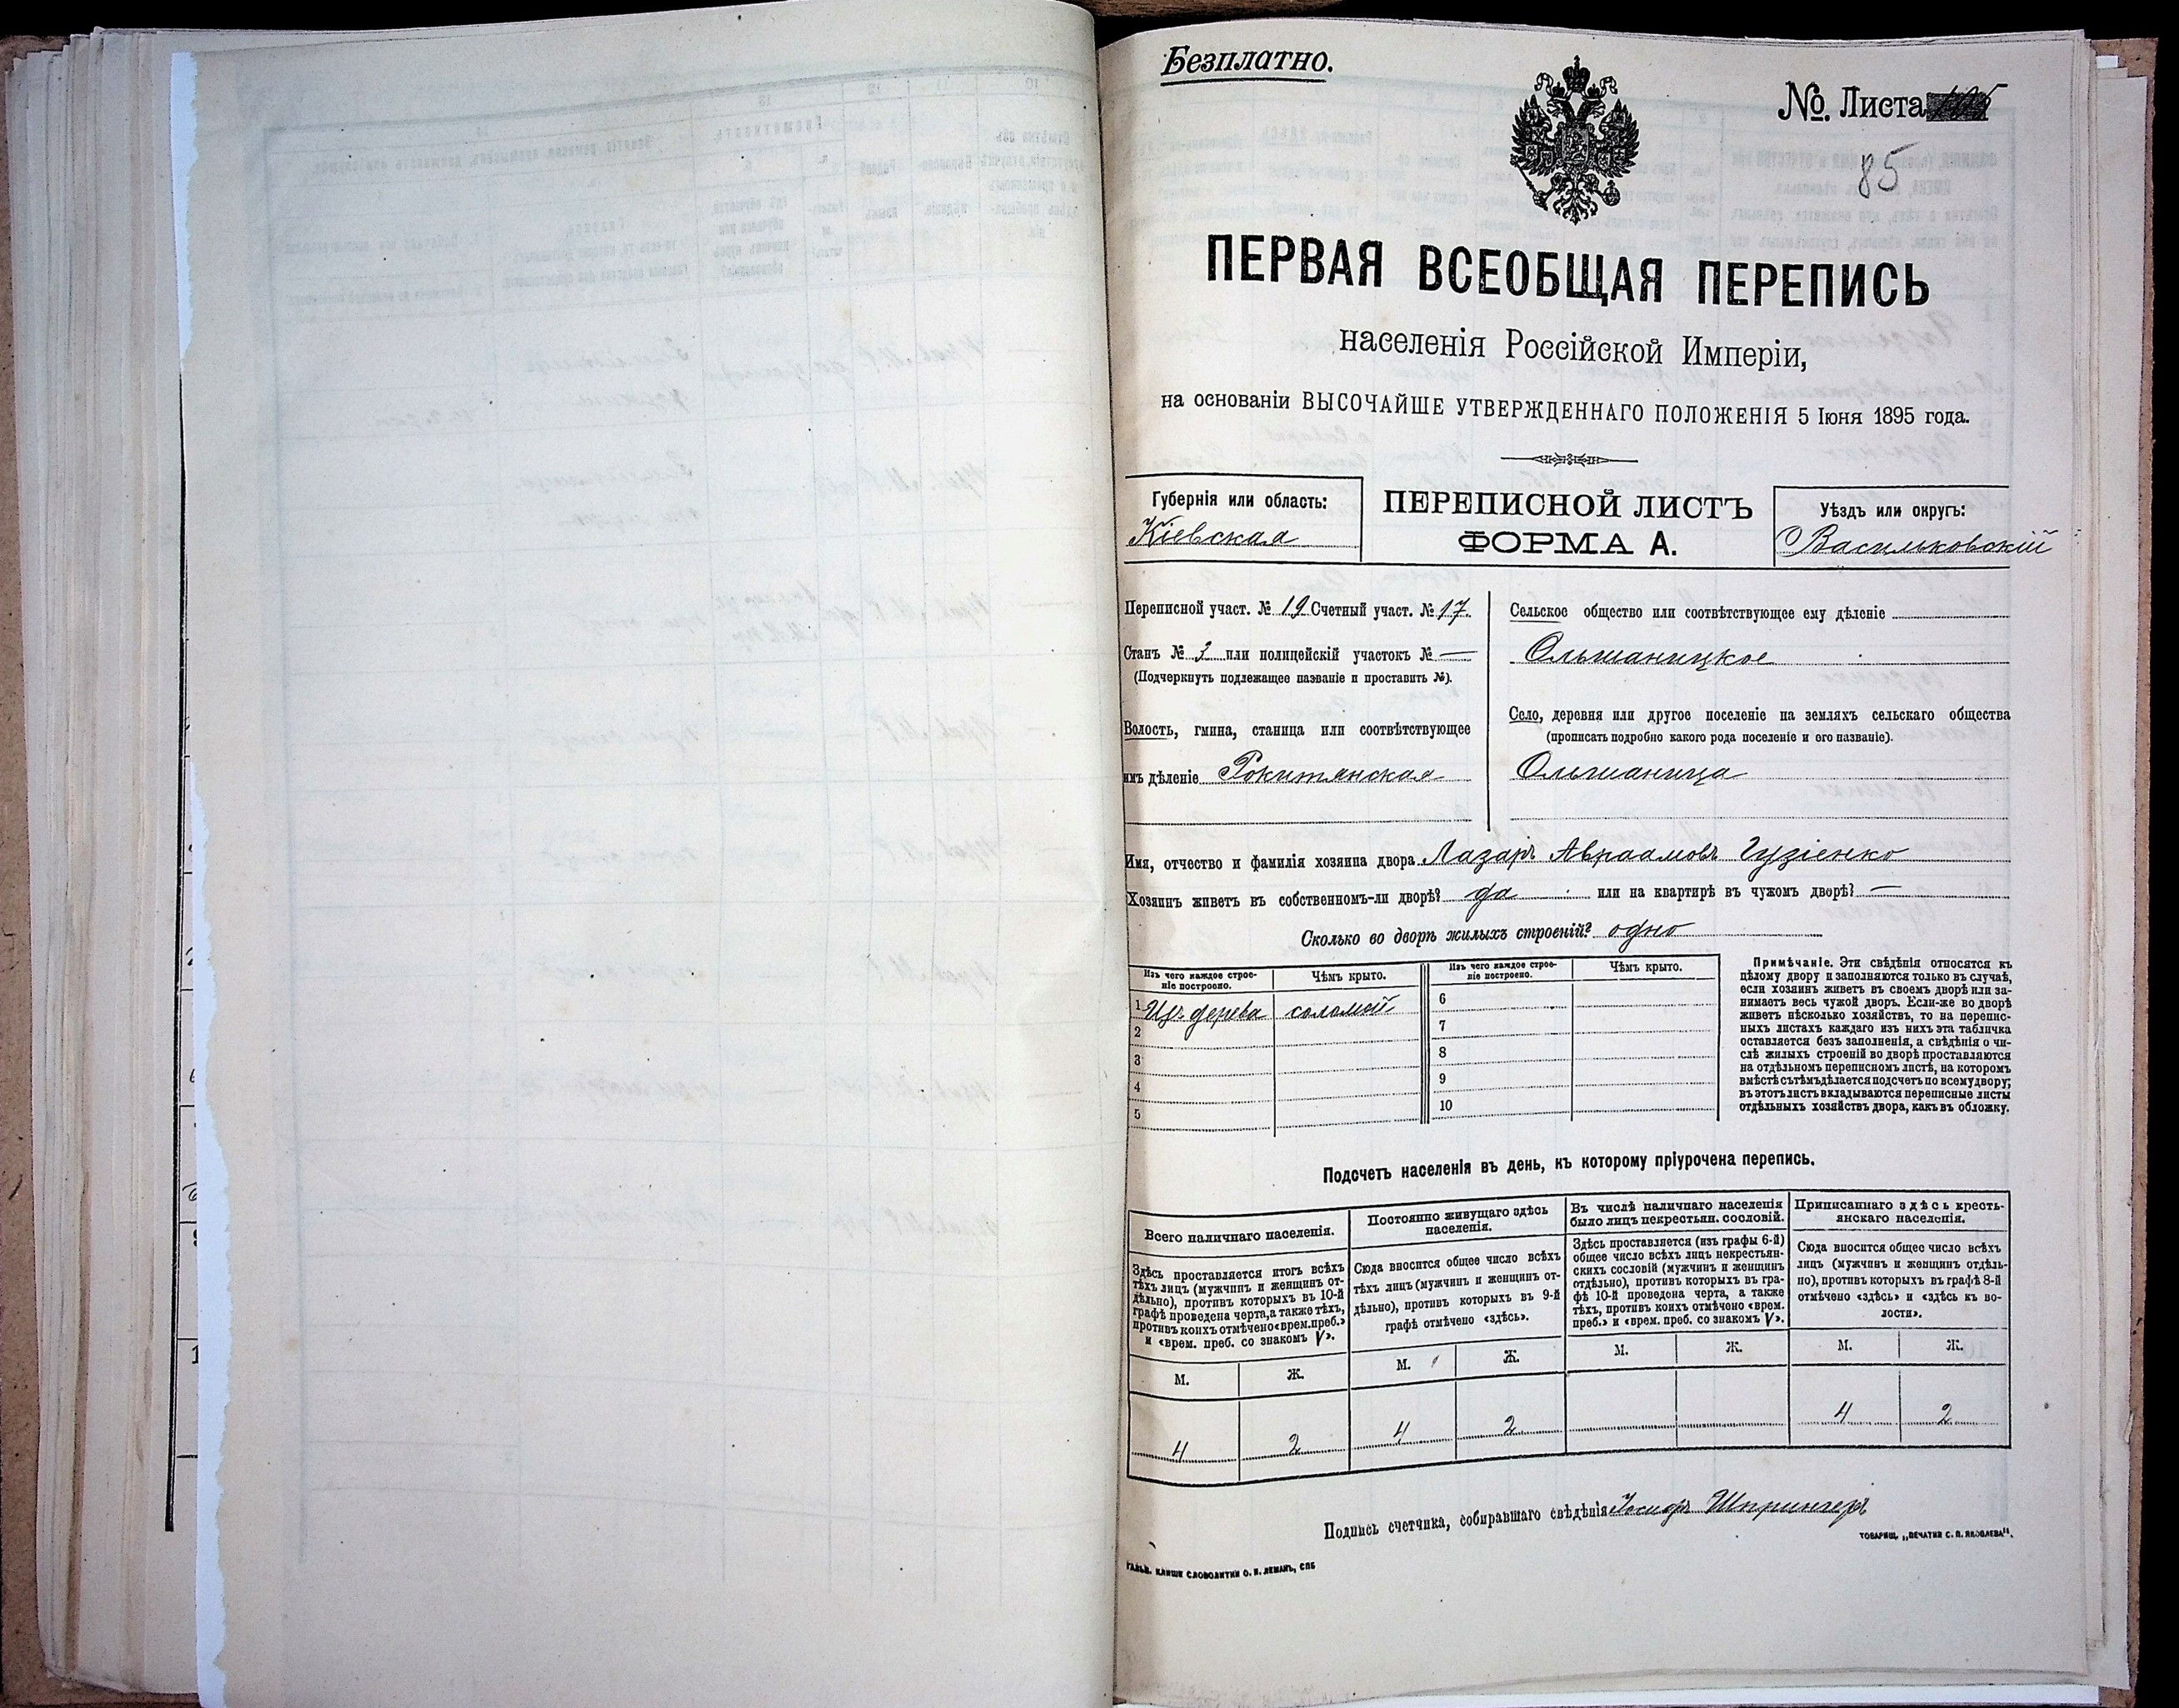 Безплатно.
№. Листа
85
ПЕРВАЯ ВСЕОБЩАЯ ПЕРЕПИСЬ
населенія Россійской Имперіи,
на основаніи ВЫСОЧАЙШЕ УТВЕРЖДЕННАГО ПОЛОЖЕНІЯ 5 Іюня 1895 года.
Губернія или область:
Кіевская
ПЕРЕПИСНОЙ ЛИСТЪ
ФОРМА А.
Уѣздъ или округъ:
Васильковскій
Переписной участ. № 19 Счетный участ. № 17.
Станъ № 3 или полицейскій участокъ № —
(Подчеркнуть подлежащее названіе и проставить №).
Волость, гмина, станица или соотвѣтствующее
имъ дѣленіе Рокитянская
Сельское общество или соотвѣтствующее ему дѣленіе
Ольшаницкое
Село, деревня или другое поселеніе на земляхъ сельскаго общества
(прописать подробно какого рода поселеніе и его названіе).
Ольшаница
Имя, отчество и фамилія хозяина двора Лазарь Авраамовъ Гузіенко
Хозяинъ живетъ въ собственномъ-ли дворѣ? да или на квартирѣ въ чужомъ дворѣ? —
Сколько во дворѣ жилыхъ строеній? одно
Изъ чего каждое строе-
ніе построено.
Чѣмъ крыто.
1 Изъ дерева соломой
2
3
4
5
Изъ чего каждое строе-
ніе построено.
Чѣмъ крыто.
6
7
8
9
10
Примѣчаніе. Эти свѣдѣнія относятся къ
цѣлому двору и заполняются только въ случаѣ,
если хозяинъ живетъ въ своемъ дворѣ или за-
нимаетъ весь чужой дворъ. Если-же во дворѣ
живетъ нѣсколько хозяйствъ, то на перепис-
ныхъ листахъ каждаго изъ нихъ эта табличка
оставляется безъ заполненія, а свѣдѣнія о чи-
слѣ жилыхъ строеній во дворѣ проставляются
на отдѣльномъ переписномъ листѣ, на которомъ
вмѣстѣ съ тѣмъ дѣлается подсчетъ по всему двору;
въ этотъ листъ вкладываются переписные листы
отдѣльныхъ хозяйствъ двора, какъ въ обложку.
Подсчетъ населенія въ день, къ которому пріурочена перепись.
Всего наличнаго населенія.
Здѣсь проставляется итогъ всѣхъ
тѣхъ лицъ (мужчинъ и женщинъ от-
дѣльно), противъ которыхъ въ 10-й
графѣ проведена черта, а также тѣхъ,
противъ коихъ отмѣчено «врем. преб.»
и «врем. преб. со знакомъ V».
М. Ж.
4 2
Постоянно живущаго здѣсь
населенія.
Сюда вносится общее число всѣхъ
тѣхъ лицъ (мужчинъ и женщинъ от-
дѣльно), противъ которыхъ въ 9-й
графѣ отмѣчено «здѣсь».
М. Ж.
4 2
Въ числѣ наличнаго населенія
было лицъ некрестьян. сословій.
Здѣсь проставляется (изъ графы 6-й)
общее число всѣхъ лицъ некрестьян-
скихъ сословій (мужчинъ и женщинъ
отдѣльно), противъ которыхъ въ гра-
фѣ 10-й проведена черта, а также
тѣхъ, противъ коихъ отмѣчено «врем.
преб.» и «врем. преб. со знакомъ V».
М. Ж.
Приписаннаго здѣсь кресть-
янскаго населенія.
Сюда вносится общее число всѣхъ
лицъ (мужчинъ и женщинъ отдѣль-
но), противъ которыхъ въ графѣ 8-й
отмѣчено «здѣсь» и «здѣсь къ во-
лости».
М. Ж.
4 2
Подпись счетчика, собиравшаго свѣдѣнія Іосифъ Шпрингеръ
ТОВАРИЩ. „ПЕЧАТНЯ С. П. ЯКОВЛЕВА".
ГАЛЬВ. КЛИШЕ СЛОВОЛИТНИ О. И. ЛЕМАНЪ, СПБ